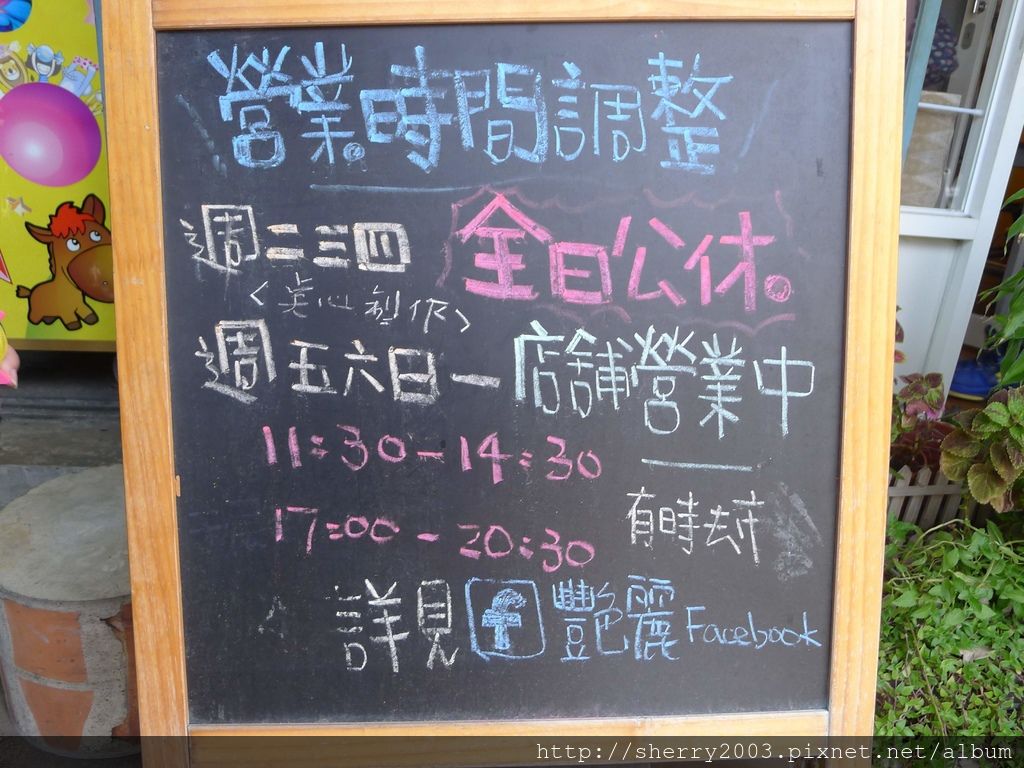 營業時間調整
週二三四 全日公休。
<点心製作>
週五六日一 店舖營業中
11:30-14:30
17:00-20:30
有時去市
詳見 f 艷麗 Facebook
http://sherry2003.pixnet.net/album